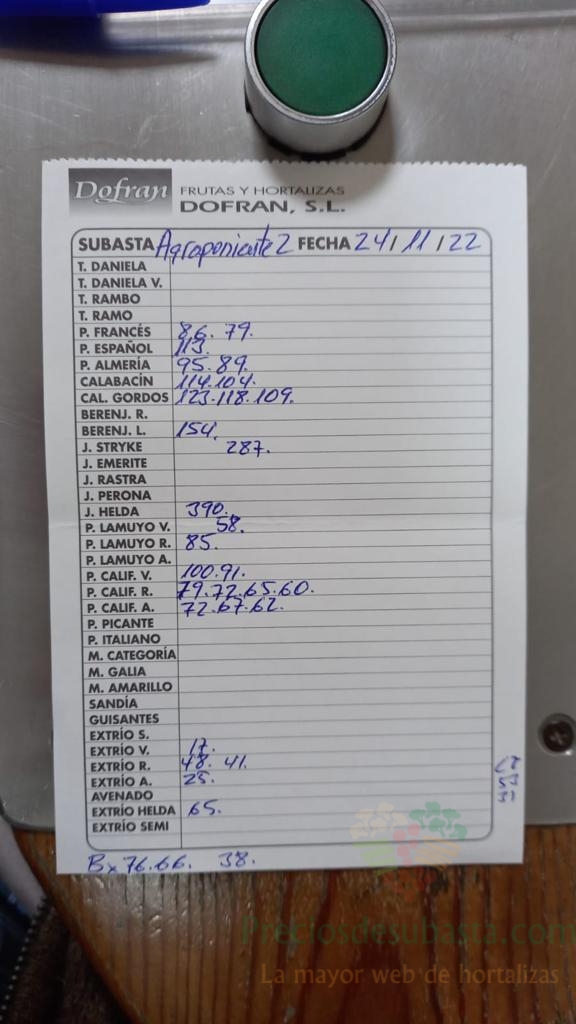 Dofran FRUTAS Y HORTALIZAS
DOFRAN, S.L.
SUBASTA Agroponiente 2 FECHA 24/11/22
T. DANIELA
T. DANIELA V.
T. RAMBO
T. RAMO
P. FRANCÉS 86. 79.
P. ESPAÑOL 113.
P. ALMERÍA 95. 89.
CALABACÍN 114.104.
CAL. GORDOS 123.118.109.
BERENJ. R.
BERENJ. L. 154.
J. STRYKE 287.
J. EMERITE
J. RASTRA
J. PERONA
J. HELDA 390.
P. LAMUYO V. 58.
P. LAMUYO R. 85.
P. LAMUYO A.
P. CALIF. V. 100.91.
P. CALIF. R. 79.72.65.60.
P. CALIF. A. 72.67.62.
P. PICANTE
P. ITALIANO
M. CATEGORÍA
M. GALIA
M. AMARILLO
SANDÍA
GUISANTES
EXTRÍO S.
EXTRÍO V. 17.
EXTRÍO R. 48. 41.
EXTRÍO A. 25.
AVENADO
EXTRÍO HELDA 65.
EXTRÍO SEMI
Bx 76.66. 38.
Preciosdesubasta.com
La mayor web de hortalizas